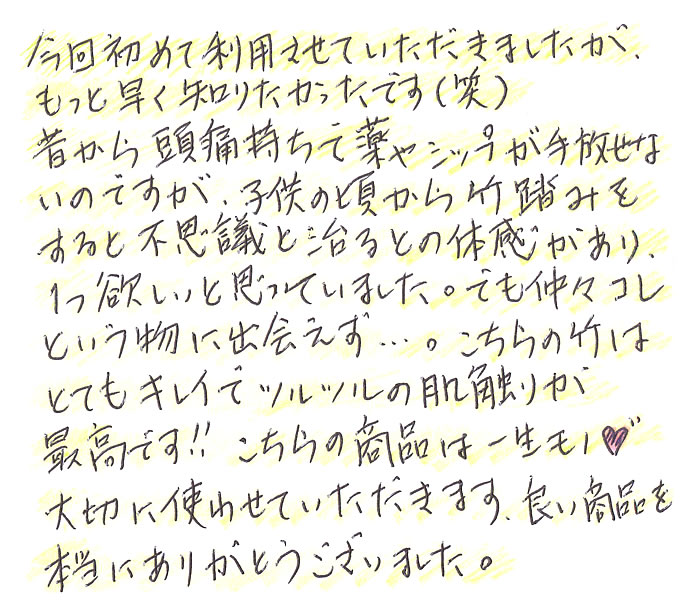 今回初めて利用させていただきましたが、
もっと早く知りたかったです(笑)
昔から頭痛持ちで薬やシップが手放せな
いのですが、子供の頃から竹踏みを
すると不思議と治るとの体感があり、
1つ欲しいと思っていました。でも仲々コレ
という物に出会えず…。こちらの竹は
とてもキレイでツルツルの肌触りが
最高です!! こちらの商品は一生モノ♥
大切に使わせていただきます、良い商品を
本当にありがとうございました。